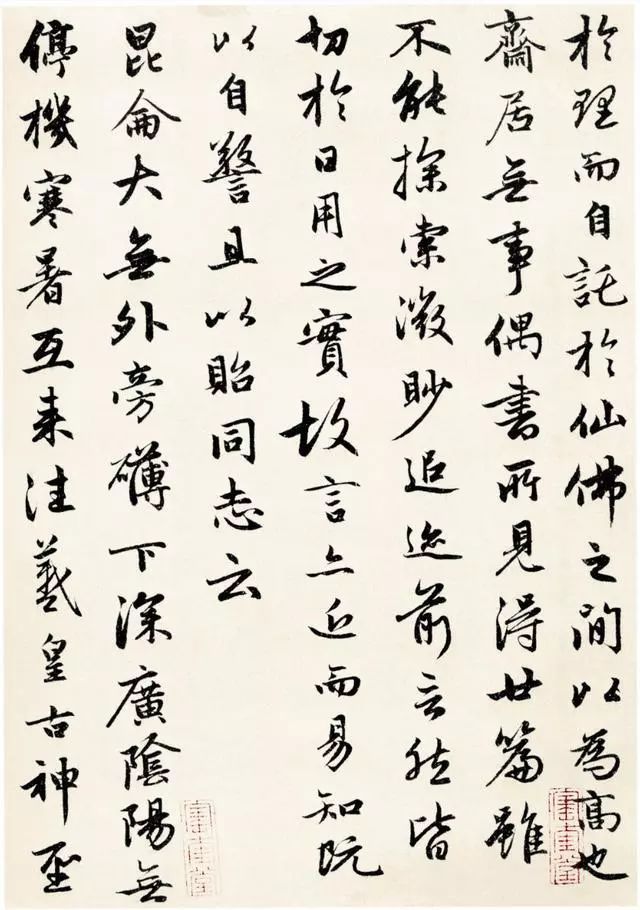 於理而自託於仙佛之間以為高也
齋居无事偶書所見得廿篇雖
不能探索微眇追迹前言然皆
切於日用之實故言亦近而易知既
以自警且以貽同志云
昆侖大無外旁礴下深廣陰陽無
停機寒暑互來往羲皇古神聖